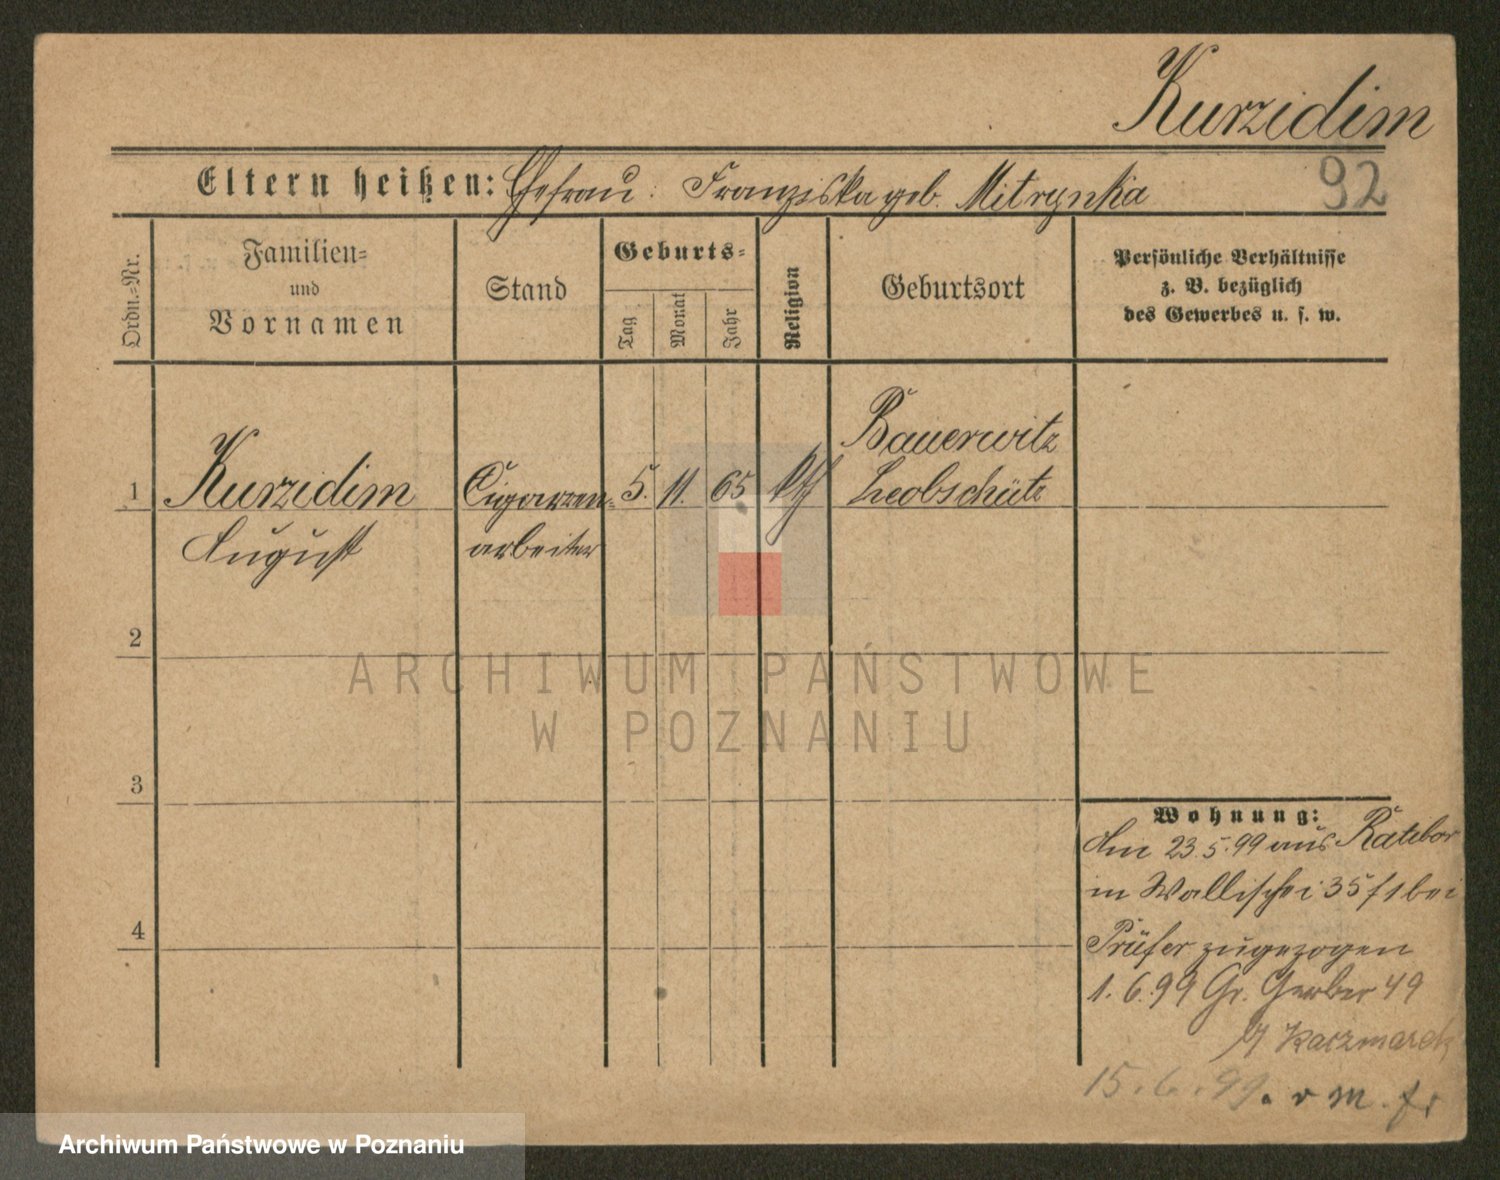 Kurzidim
Eltern heißen: Ehefrau: Franziska geb. Mitrynka
92
Ordn.-Nr.
Familien-
und
Vornamen
Stand
Geburts-
Tag
Monat
Jahr
Religion
Geburtsort
Persönliche Verhältnisse
z. B. bezüglich
des Gewerbes u. s. w.
1 Kurzidim Cigarren- 5. 11. 65 kth Bauerwitz
Leobschütz
August arbeiter
2
3
4
Wohnung:
Am 23.5.99 aus Ratibor
in Wallischei 35 f 1 bei
Prüfer zugezogen
1. 6. 99 Gr. Gerber 49
Kaczmarek
15. 6. 99.
ARCHIWUM PAŃSTWOWE
W POZNANIU
Archiwum Państwowe w Poznaniu